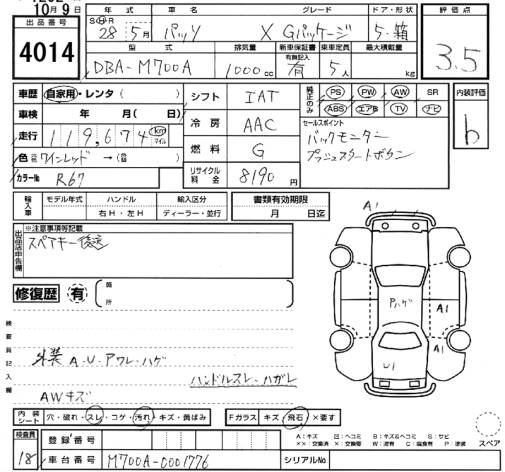 10月9日
出品番号
4014
年式 車名 グレード ドア・形状
S・H・R 28年 5月 パッソ X Gパッケージ 5・箱
型式 排気量 新車保証書 有無記入 乗車定員 最大積載量
DBA-M700A 1000cc 有 5人 kg
評価点
3.5
車歴 自家用・レンタ( )
車検 年 月( 日)
走行 119,674 km マイル
色 ワインレッド →( )
カラーNo R67
シフト IAT
冷房 AAC
燃料 G
リサイクル料金 8190円
純正のみ
PS PW AW SR
ABS エアB TV ナビ
セールスポイント
バックモニター
プッシュスタートボタン
内装評価
b
輸入車
モデル年式 ハンドル 輸入区分
右H・左H ディーラー・並行
書類有効期限
月 日迄
出品店申告欄
※注意事項等記載
スペアキー後送
修復歴 有 箇所
検査員記入欄
外装 A・U・アワレ・ハゲ
ハンドルスレ・ハガレ
AWキズ
A1
Pハゲ
A1
A1
U1
内装シート 穴・破れ・スレ・コゲ・汚れ・キズ・黄ばみ
Fガラス キズ・飛石・×要す
検査員 18
登録番号
車台番号 M700A-0001776
シリアルNo
A:キズ U:ヘコミ B:キズ&ヘコミ S:サビ
××:交換済 ×:要交換 W:波有 C:腐食有 P:塗装
スペア